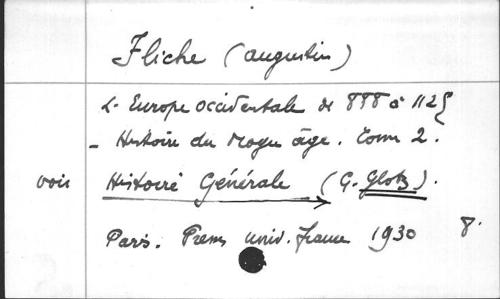 Fliche (Augustin)
L'Europe occidentale de 888 à 1125
- Histoire du Moyen âge. Tome 2.
voir Histoire Générale (G. Glotz).
Paris. Presses univ. France 1930 8.